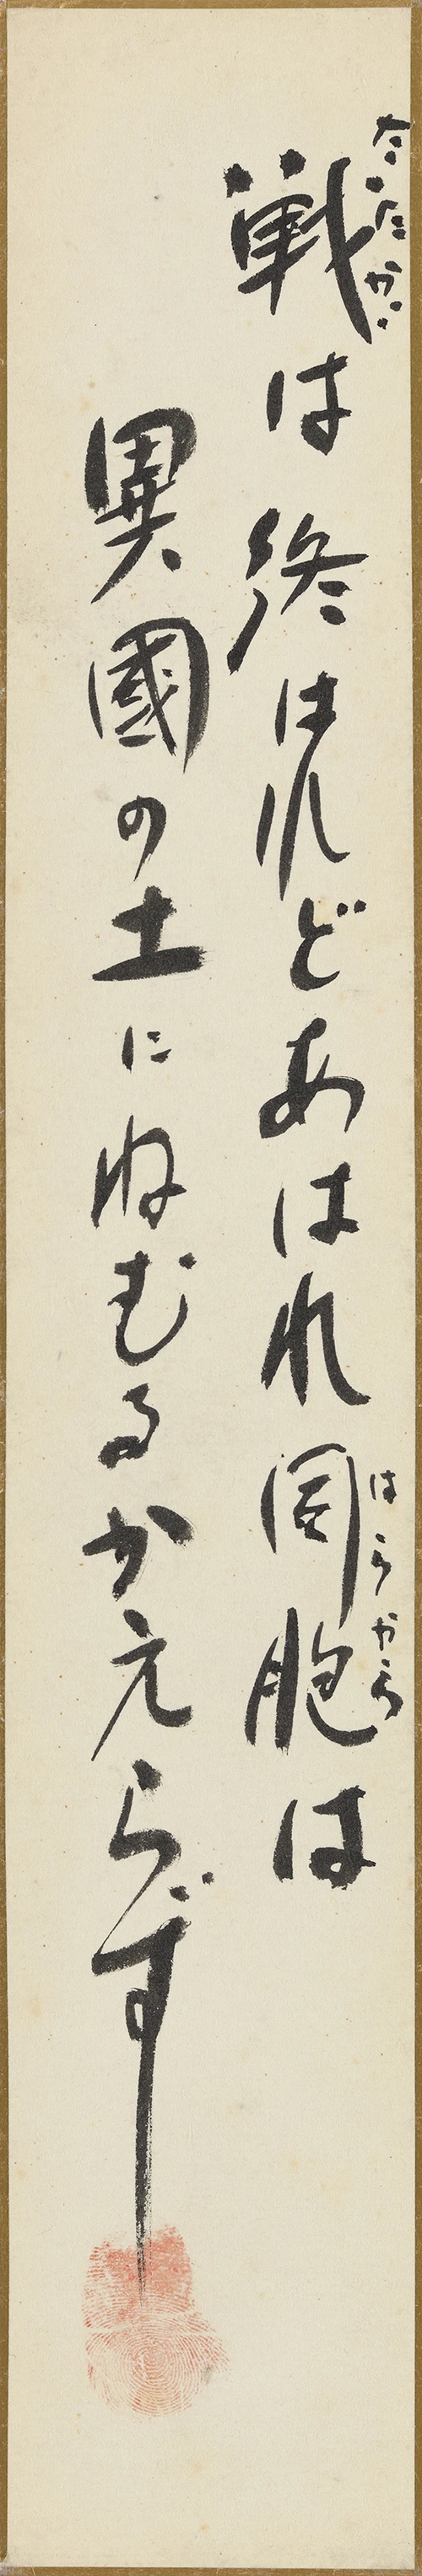 戦は終はれどあはれ同胞は
はらから
異國の土にねむるかえらず